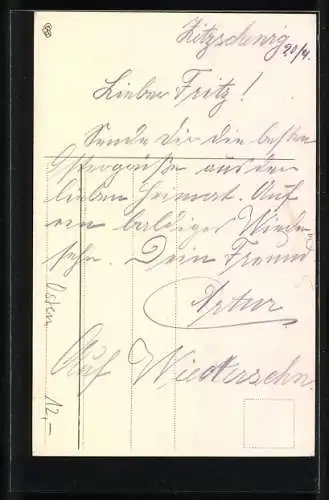 Zitzschewig
20/4.
Lieber Fritz!
Sende Dir die besten
Ostergrüße aus der
lieben Heimat. Auf
ein baldiges Wieder-
sehn. Dein Freund
Artur
Auf Wiedersehn.
Ostern
12,-